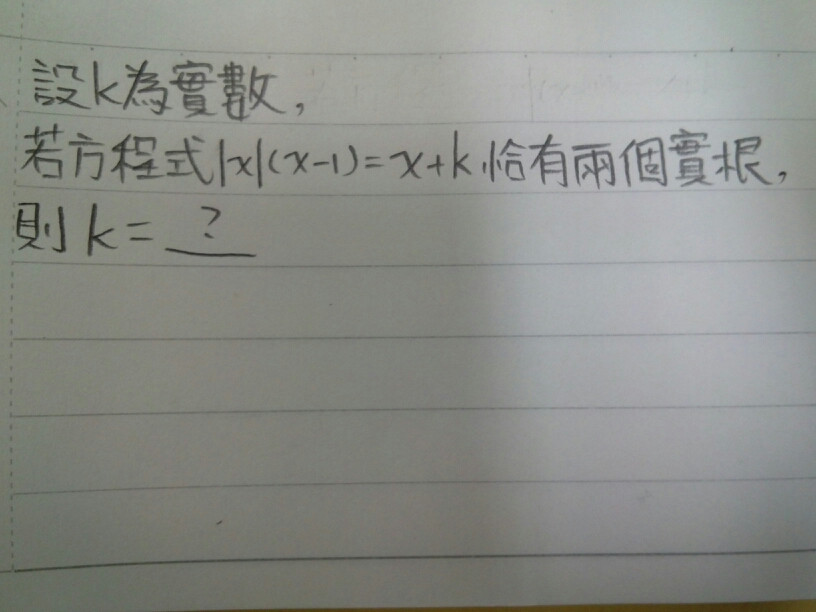 設k為實數,
若方程式|x|(x-1)=x+k恰有兩個實根,
則k=?